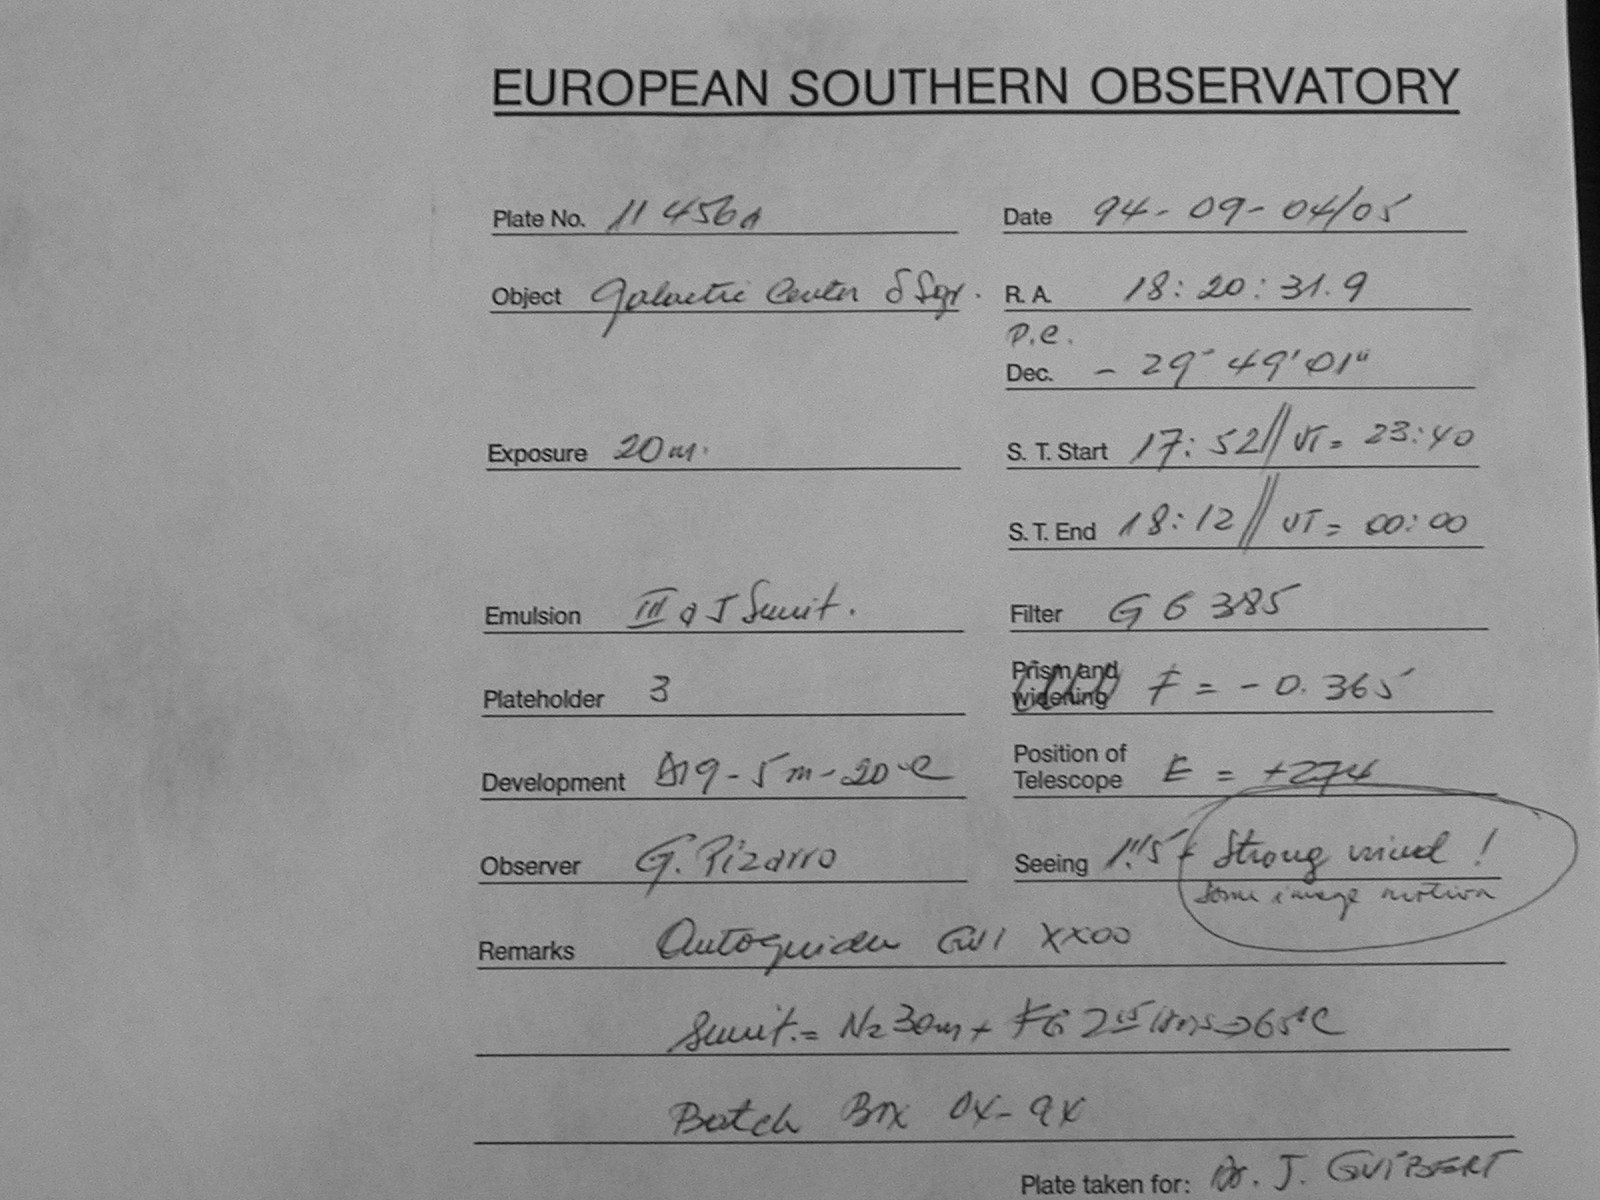 EUROPEAN SOUTHERN OBSERVATORY
Plate No. 11456A Date 94-09-04/05
Object Galactic Center δ Sgr. R. A. 18:20:31.9
P.e.
Dec. - 29° 49' 01"
Exposure 20m. S. T. Start 17:52 // UT = 23:40
S. T. End 18:12 // UT = 00:00
Emulsion III a J Sensit. Filter GG 385
Plateholder 3 Prism and widening F = - 0.365
Development D19 - 5m - 20°C Position of Telescope E = +274
Observer G. Pizarro Seeing 1"5 + Strong wind !
Some image motion
Remarks Autoguider XX00
Sensit. = N2 30m + FG 65°C
Batch Box 0X-9X
Plate taken for: Dr. J. GUIBERT